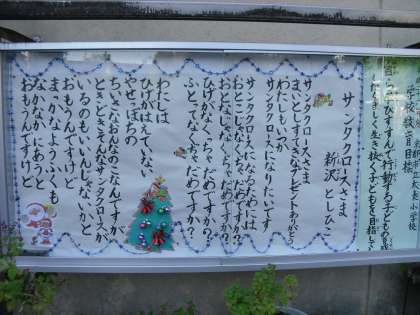 すすんで行動する子どもの育成
たくましく生き抜く子どもを目指して
サンタクロースさま
新沢 としひこ
サンタクロースさま
まいとしすてきなプレゼントありがとう
わたしもいつか
サンタクロースになりたいです
サンタクロースになるためには
おとこじゃなくちゃだめですか?
おとなじゃなくちゃだめですか?
ひげがなくちゃだめですか?
ふとってなくちゃだめですか?
わたしは
ひげがはえていない
やせっぽちの
ちいさなおんなのこなんですが
ときどきそんなサンタクロースが
いるのもいいんじゃないかと
おもうんですけど
まっかなようふくも
なかなかにあうと
おもうんですけど